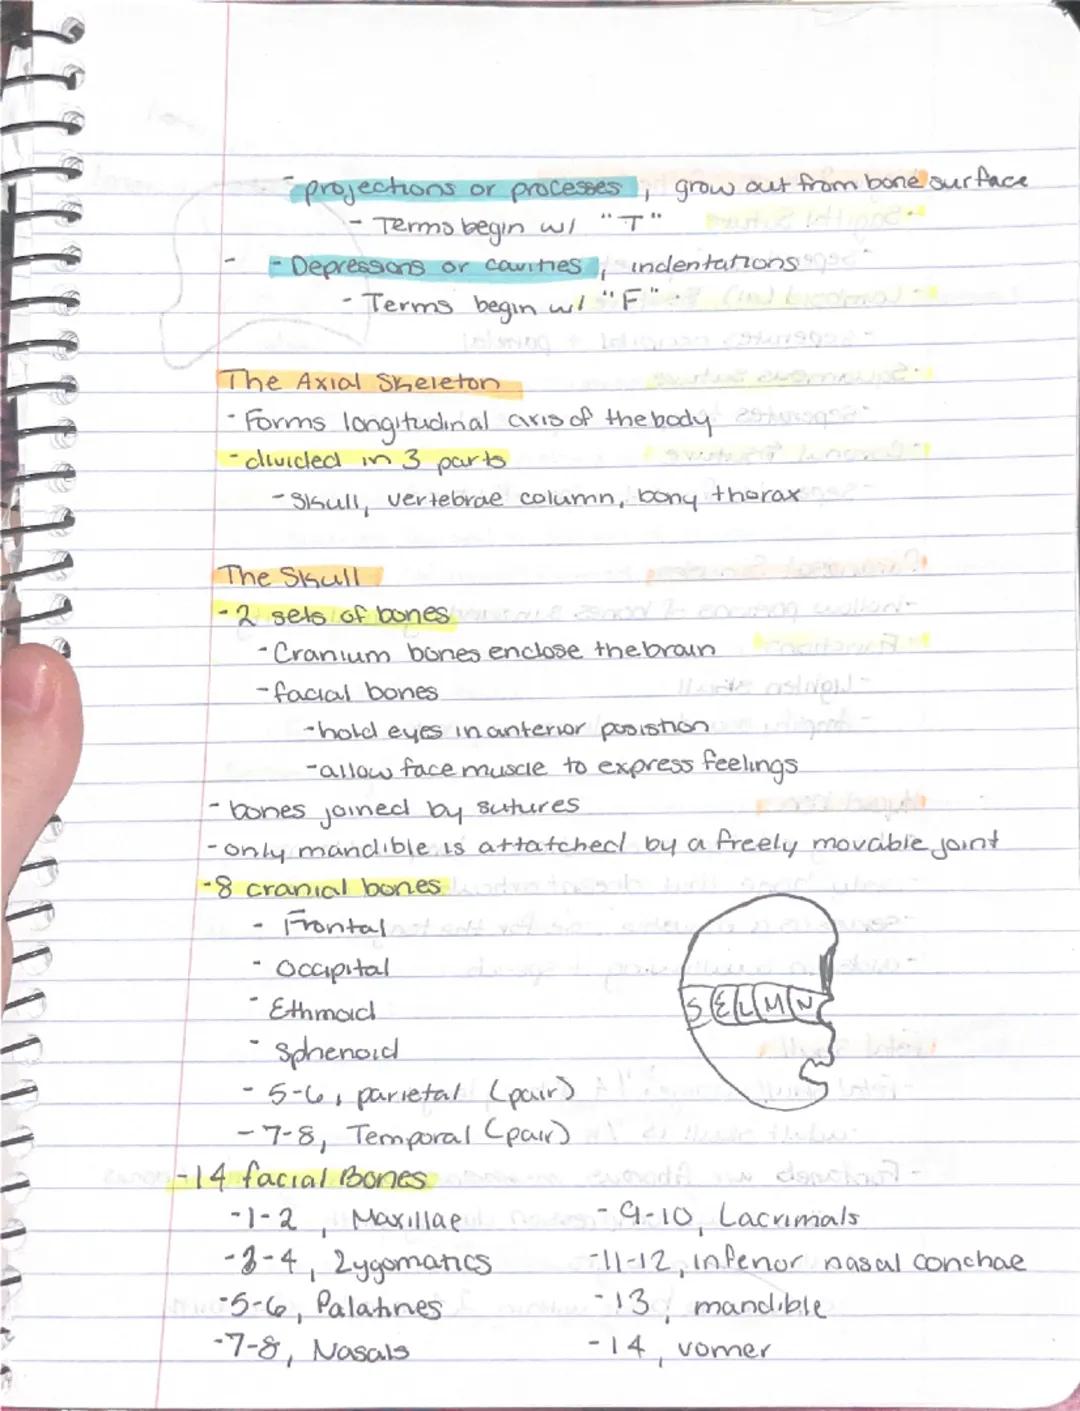 - projections or processes, grow out from bone surface
- Terms begin w/ "T"
- - Depressions or cavities, indentations
- Terms begin w/ "F"
The Axial Skeleton
- Forms longitudinal axis of the body
- divided in 3 parts
- Skull, vertebrae column, bony thorax
The Skull
- 2 sets of bones
- Cranium bones enclose the brain
- facial bones
- hold eyes in anterior posistion
- allow face muscle to express feelings
- bones joined by sutures
- only mandible is attatched by a freely movable joint
- 8 cranial bones
- Frontal
- Occipital
- Ethmoid
- Sphenoid
S E L M N
- 5-6, parietal (pair)
- 7-8, Temporal (pair)
- 14 facial Bones
- 1-2, Maxillae
- 3-4, Zygomatics
- 5-6, Palatines
- 7-8, Nasals
- 9-10, Lacrimals
- 11-12, inferior nasal conchae
- 13, mandible
- 14, vomer